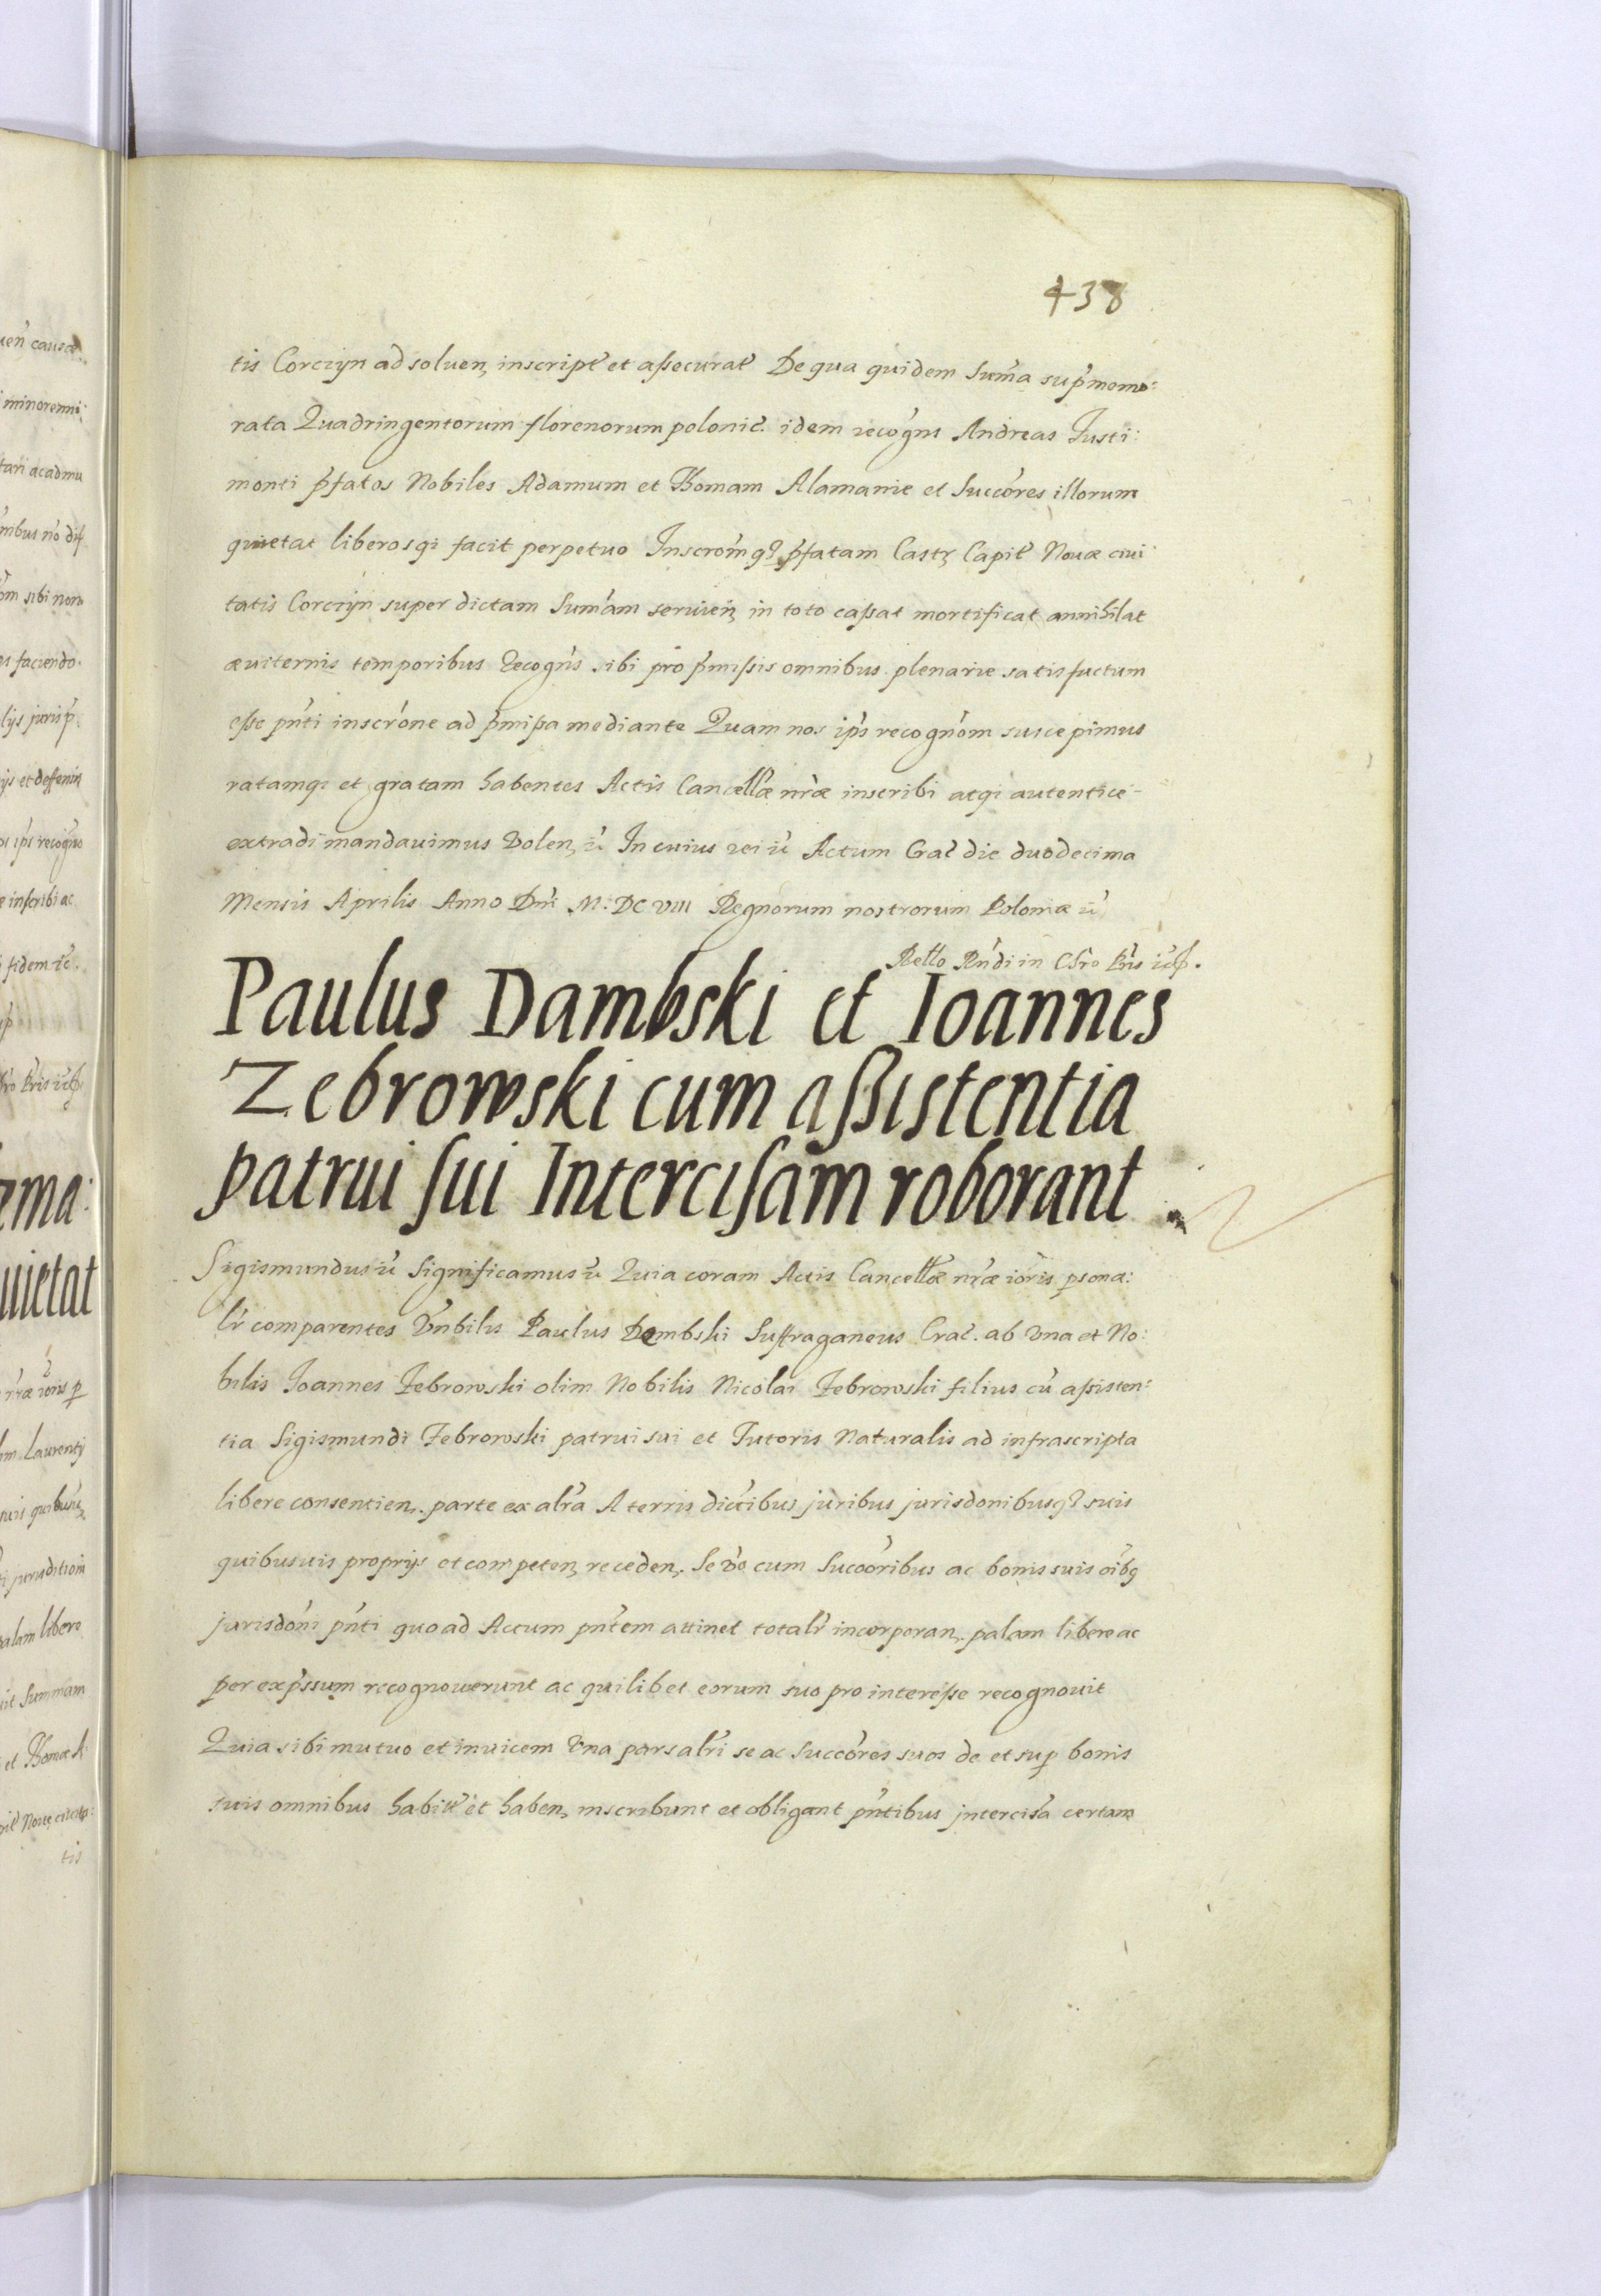 438
tis Corczyn ad soluen, inscript et aßecurat De qua quidem Suma supmemo:
rata Quadringentorum florenorum polonic. idem recogns Andreas Justi:
monti pfatos Nobiles Adamum et Thomam Alamanie et Succores illorum
quietat liberosqi facit perpetuo Inscromq pfatam Castr Capit Nouæ ciui:
tatis Corczyn super dictam Sumam seruien in toto caßat mortificat annihilat
æuiternis temporibus Recogns sibi pro pmißis omnibus plenarie satisfactum
eße pnti inscrone ad pmißa mediante Quam nos ips recognom suscepimus
ratamqi et gratam habentes Actis Cancellæ nræ inscribi atqi autentice
extradi mandauimus Volen, ē In cuius rei ē Actum Crac die duodecima
Mensis Aprilis Anno Dni M: DC VIII Regnorum nostrorum Poloniæ ē
Retto Rndi in Chro Pris
Paulus Dambski et Ioannes
Zebrowski cum aßistentia
patrui sui Intercisam roborant
Sigismundus ē Significamus ē Quia coram Actis Cancellæ nræ ioris psona:
lr comparentes Vnbilis Paulus Dembski Suffraganeus Crac. ab Vna et No:
bilis Joannes Zebrowski olim Nobilis Nicolai Zebrowski filius cū aßisten:
tia Sigismundi Zebrowski patrui sui et Tutoris Naturalis ad infrascripta
libere consentien, parte ex alra A terris dictibus juribus jurisdonibusq suis
quibusuis proprijs et competen, receden, Se vo cum Succoribus ac bonis suis oibq
jurisdoni pnti quo ad Actum pntem attinet totalr incorporan, palam libere ac
per expssum recognouerunt ac quilibet eorum suo pro intereße recognouit
Quia sibi mutuo et inuicem Vna pars alri se ac Succores suos de et sup bonis
suis omnibus habit et haben, inscribunt et obligant pntibus jntercisa certam